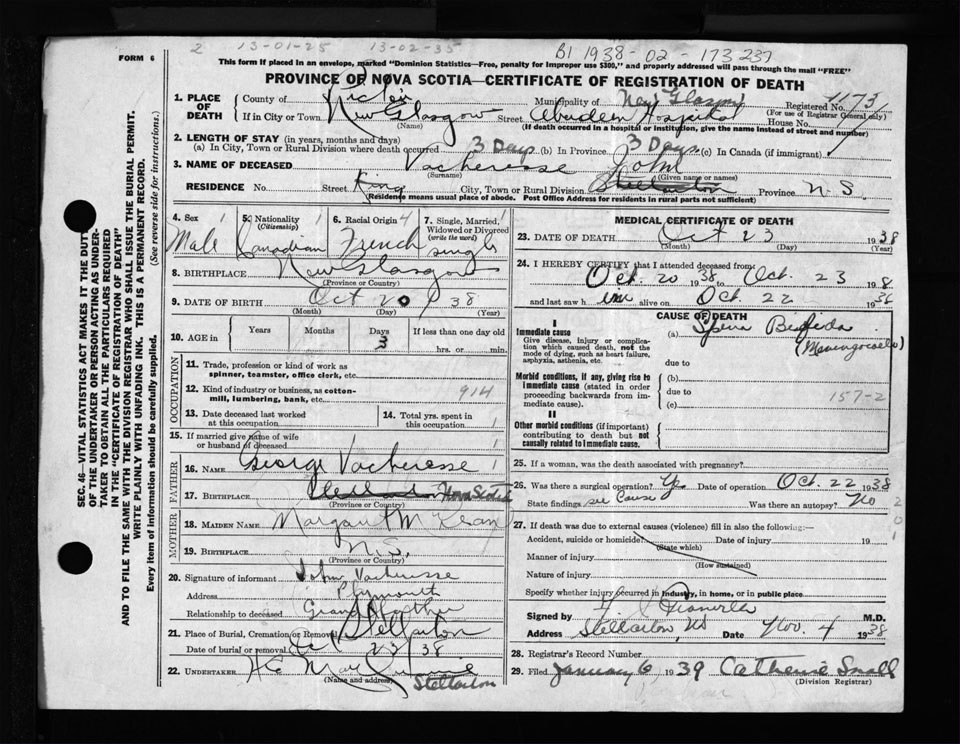 2 13-01-25 13-02-35 B1 1938-02-173237
FORM 6
This form if placed in an envelope, marked "Dominion Statistics—Free, penalty for improper use $300," and properly addressed will pass through the mail "FREE"
PROVINCE OF NOVA SCOTIA—CERTIFICATE OF REGISTRATION OF DEATH
1. PLACE OF DEATH County of Pictou Municipality of New Glasgow Registered No. 1173
(For use of Registrar General only)
If in City or Town New Glasgow (Name) Street Aberdeen Hospital House No.
(If death occurred in a hospital or institution, give the name instead of street and number)
2. LENGTH OF STAY (in years, months and days)
(a) In City, Town or Rural Division where death occurred 3 Days (b) In Province 3 Days (c) In Canada (if immigrant)
3. NAME OF DECEASED Vacheresse (Surname) John (Given name or names)
RESIDENCE No. Street King City, Town or Rural Division Stellarton Province N.S.
(Residence means usual place of abode. Post Office Address for residents in rural parts not sufficient)
SEC. 46—VITAL STATISTICS ACT MAKES IT THE DUTY
OF THE UNDERTAKER OR PERSON ACTING AS UNDER-
TAKER TO OBTAIN ALL THE PARTICULARS REQUIRED
IN THE "CERTIFICATE OF REGISTRATION OF DEATH"
AND TO FILE THE SAME WITH THE DIVISION REGISTRAR WHO SHALL ISSUE THE BURIAL PERMIT.
WRITE PLAINLY WITH UNFADING INK. THIS IS A PERMANENT RECORD.
Every item of information should be carefully supplied. (See reverse side for instructions.)
4. Sex 1 5. Nationality 1 (Citizenship) 6. Racial Origin 4 7. Single, Married, Widowed or Divorced (write the word) 1
Male Canadian French single
8. BIRTHPLACE New Glasgow
(Province or Country)
9. DATE OF BIRTH Oct 20 1938
(Month) (Day) (Year)
10. AGE in Years Months Days 3 If less than one day old
hrs. or min.
OCCUPATION
11. Trade, profession or kind of work as
spinner, teamster, office clerk, etc.
12. Kind of industry or business, as cotton-
mill, lumbering, bank, etc. 914
13. Date deceased last worked
at this occupation
14. Total yrs. spent in
this occupation
15. If married give name of wife
or husband of deceased
FATHER
16. NAME George Vacheresse
17. BIRTHPLACE Nova Scotia
(Province or Country)
MOTHER
18. MAIDEN NAME Margaret McLean
19. BIRTHPLACE N.S.
(Province or Country)
20. Signature of informant John Vacheresse
Address Plymouth
Relationship to deceased Grand
21. Place of Burial, Cremation or Removal Stellarton
Date of burial or removal Oct 23/38
22. UNDERTAKER H.C.
(Name and address) Stellarton
MEDICAL CERTIFICATE OF DEATH
23. DATE OF DEATH Oct 23 1938
(Month) (Day) (Year)
24. I HEREBY CERTIFY that I attended deceased from
Oct. 20 1938 to Oct. 23 1938
and last saw him alive on Oct 22 1938
CAUSE OF DEATH
I
Immediate cause
Give disease, injury or complica-
tion which caused death, not the
mode of dying, such as heart failure,
asphyxia, asthenia, etc.
(a) Spina Bifida
(Meningocele)
due to
Morbid conditions, if any, giving rise to
immediate cause (stated in order
proceeding backwards from im-
mediate cause).
(b)
due to 157-2
(c)
II
Other morbid conditions (if important)
contributing to death but not
causally related to immediate cause.
25. If a woman, was the death associated with pregnancy?
26. Was there a surgical operation? Yes Date of operation Oct. 22 1938
State findings see Cause Was there an autopsy? No
27. If death was due to external causes (violence) fill in also the following:—
Accident, suicide or homicide? Date of injury 19
(State which)
Manner of injury
(How sustained)
Nature of injury
Specify whether injury occurred in industry, in home, or in public place
Signed by M.D.
Address Stellarton, NS Date Nov. 4 1938
28. Registrar's Record Number
29. Filed January 6 1939 Catherine Small
(Division Registrar)